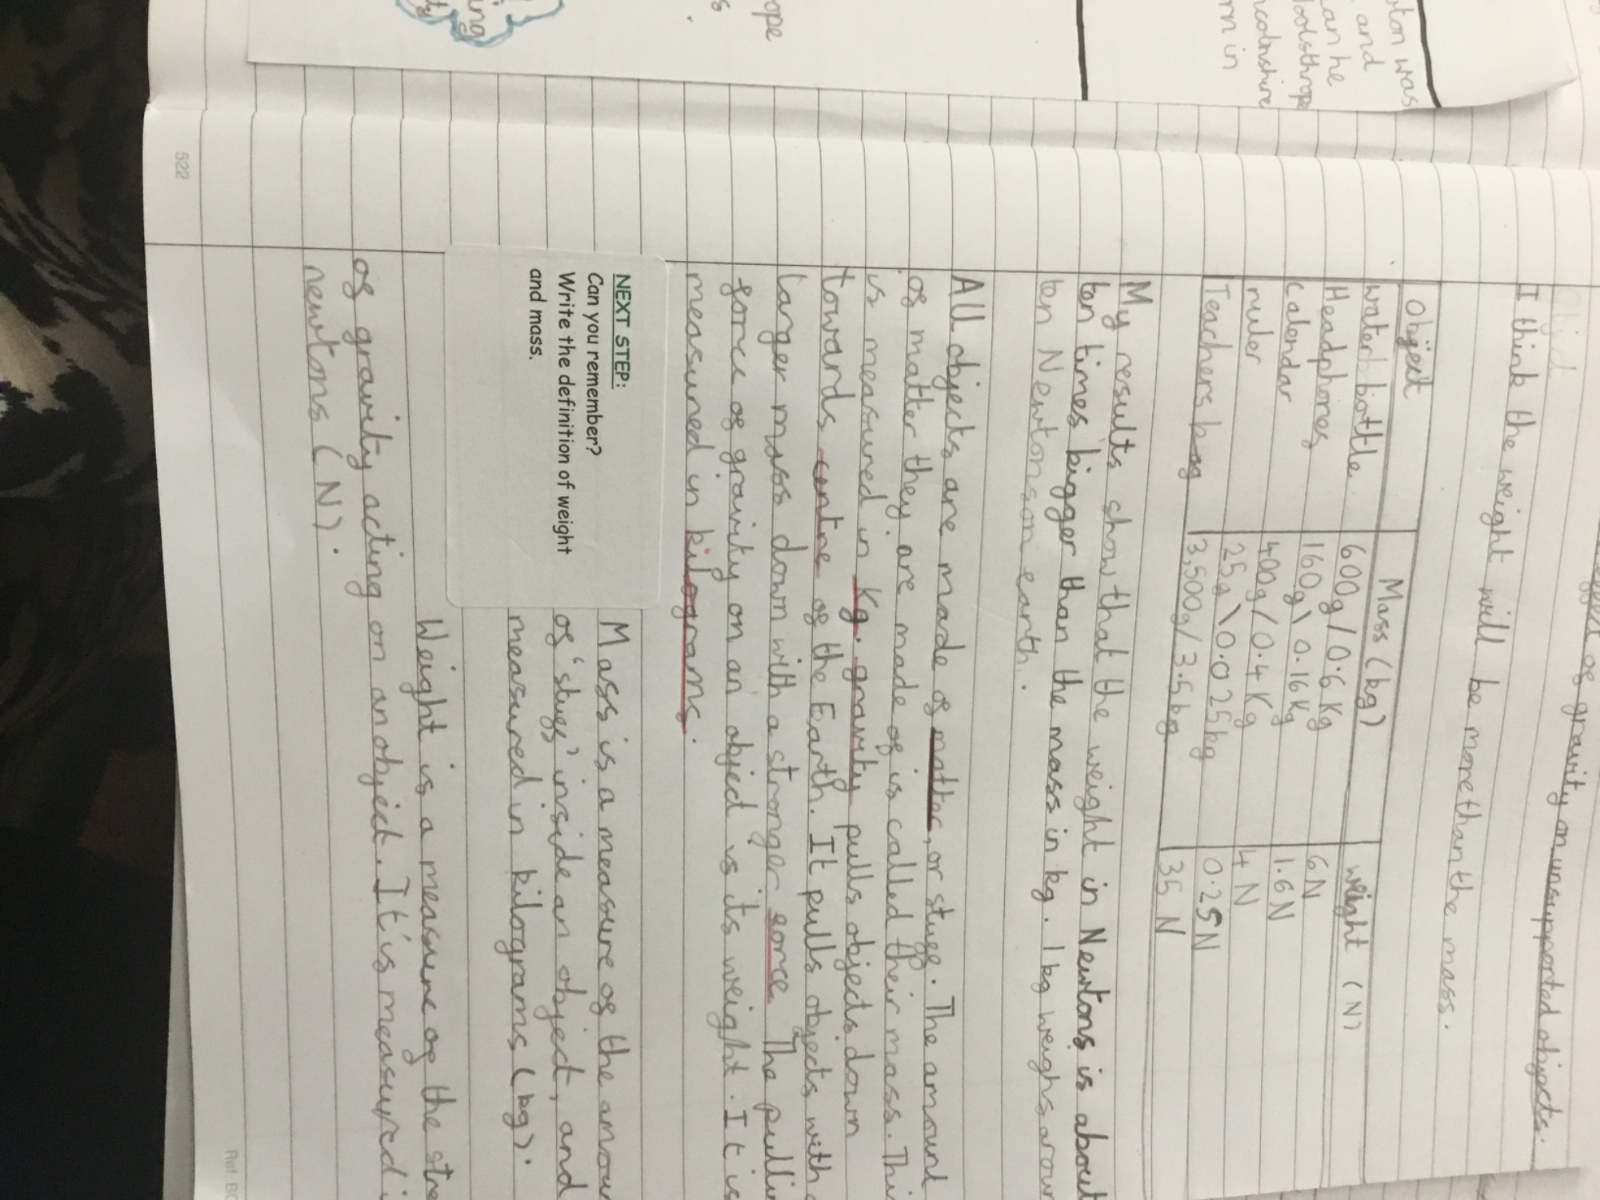 ton was
and
an he
oolsthrope
ncolnshire
rn in
ope
s
ing
of gravity on unsupported objects.
I think the weight will be more than the mass.
Object Mass (kg) weight (N)
water bottle 600g/0.6 kg 6N
Headphones 160g\0.16 kg 1.6N
calendar 400g/0.4 kg 4 N
ruler 25g\0.025kg 0.25N
Teachers bag 3,500g/3.5kg 35 N
My results show that the weight in Newtons is about
ten times bigger than the mass in kg. 1 kg weighs aroun
ten Newtons on earth.
All objects are made of matter, or stuff. The amount
of matter they are made of is called their mass. Thi
is measured in kg. gravity pulls objects down
towards centre of the Earth. It pulls objects with a
larger mass down with a stronger force The pullin
force of gravity on an object is its weight. It is
measured in kilograms.
NEXT STEP:
Can you remember?
Write the definition of weight
and mass.
Mass is a measure of the amou
of 'stuff' inside an object, and
measured in kilograms (kg).
Weight is a measure of the stre
of gravity acting on an object. It's measured i
newtons (N).
522
Ref: BC